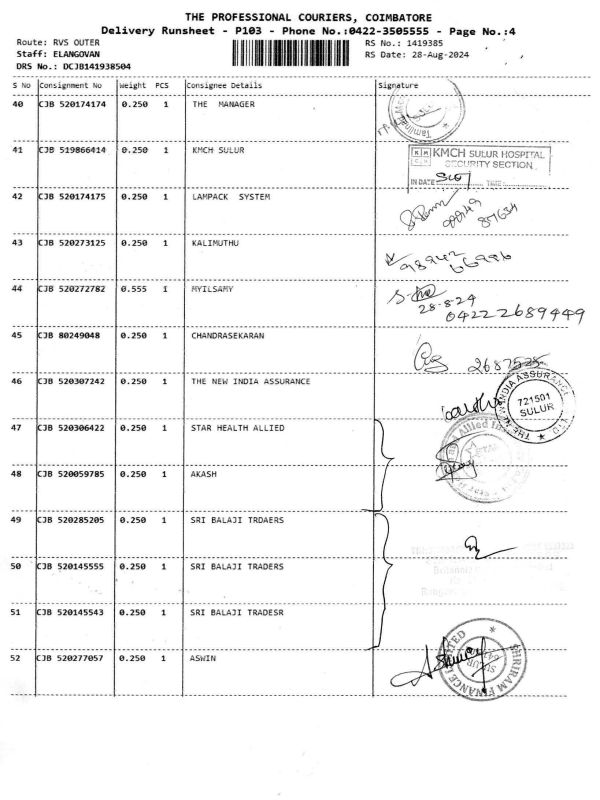 THE PROFESSIONAL COURIERS, COIMBATORE
Delivery Runsheet - P103 - Phone No.:0422-3505555 - Page No.:4
Route: RVS OUTER RS No.: 1419385
Staff: ELANGOVAN RS Date: 28-Aug-2024
DRS No.: DCJB141938504
S No Consignment No Weight PCS Consignee Details Signature
40 CJB 520174174 0.250 1 THE MANAGER
41 CJB 519866414 0.250 1 KMCH SULUR
KMCH SULUR HOSPITAL
SECURITY SECTION
IN DATE TIME
42 CJB 520174175 0.250 1 LAMPACK SYSTEM
87634
43 CJB 520273125 0.250 1 KALIMUTHU
98942
66986
44 CJB 520272782 0.555 1 MYILSAMY
28-8-24
04222689449
45 CJB 80249048 0.250 1 CHANDRASEKARAN
46 CJB 520307242 0.250 1 THE NEW INDIA ASSURANCE
THE NEW INDIA ASSURANCE
721501
SULUR
47 CJB 520306422 0.250 1 STAR HEALTH ALLIED
48 CJB 520059785 0.250 1 AKASH
49 CJB 520285205 0.250 1 SRI BALAJI TRDAERS
50 CJB 520145555 0.250 1 SRI BALAJI TRADERS
51 CJB 520145543 0.250 1 SRI BALAJI TRADESR
52 CJB 520277057 0.250 1 ASWIN
SHRIRAM FINANCE LIMITED
SULUR